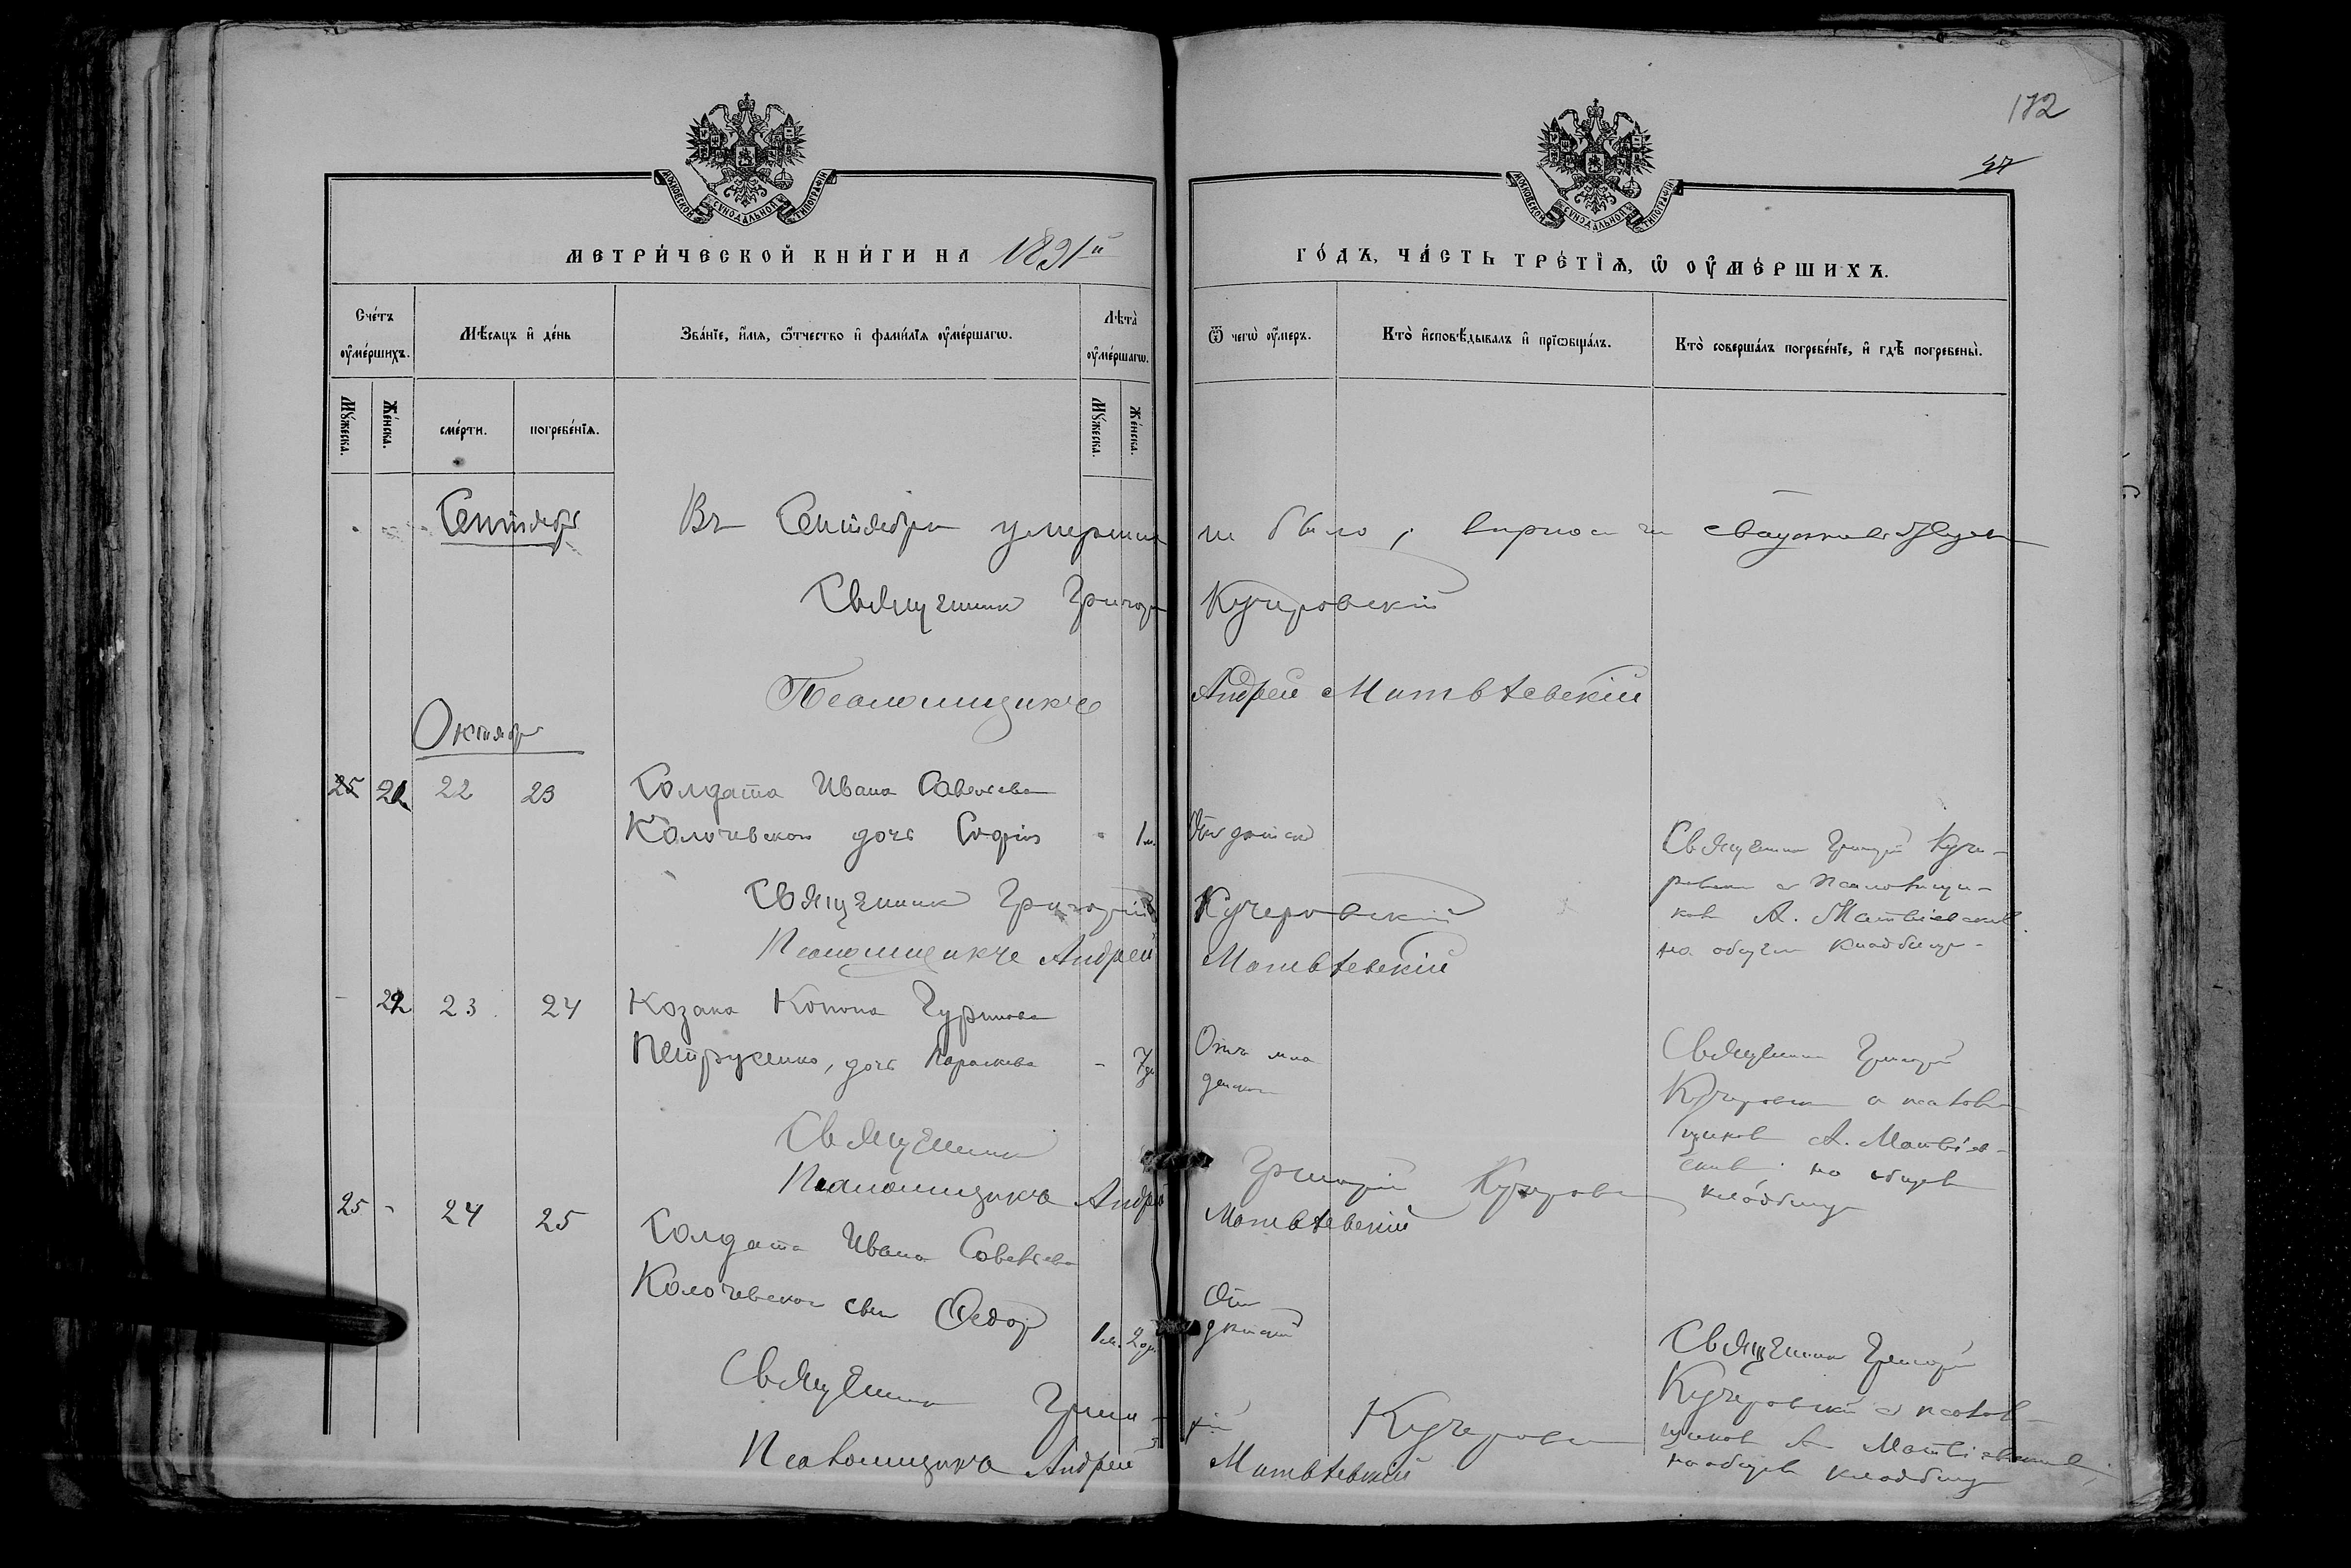 172
47
МОСКОВСКОЙ СѴНОДАЛЬНОЙ ТИПОГРАФІИ
МОСКОВСКОЙ СѴНОДАЛЬНОЙ ТИПОГРАФІИ
МЕТРИ́ЧЕСКОЙ КНИ́ГИ НА 1891й
ГО́ДЪ, ЧА́СТЬ ТРЕ́ТІѦ, Ѡ҆ ОУ҆МЕ́РШИХЪ.
Сче́тъ оу҆ме́ршихъ.
Мѣ́сѧцъ и҆ де́нь
Зва́нїе, и҆́мѧ, ѻ҆́тчество и҆ фами́лїѧ оу҆ме́ршагѡ.
Лѣ́та оу҆ме́ршагѡ.
Ѿ чегѡ̀ оу҆́меръ.
Кто̀ и҆сповѣ́дывалъ и҆ прїѡбща́лъ.
Кто̀ соверша́лъ погребе́нїе, и҆ гдѣ̀ погребены̀.
Мꙋ́жеска.
Же́нска.
сме́рти.
погребе́нїѧ.
Мꙋ́жеска.
Же́нска.
Сентябрь
Въ Сентябрѣ умершихъ не было,
Священникъ Григорій Кучеровскій
Псаломщикъ Андрей Матвѣевскій
Октябрь
25 21 22 23 Солдата Ивана Савельева
Колочевскаго дочь Софія - 1 м. Отъ
Священникъ Григорій Куче-
ровскій съ псаломщи-
комъ А. Матвіевскимъ
на общемъ кладбищѣ
Священникъ Григорій Кучеровскій
Псаломщикъ Андрей Матвѣевскій
- 22 23 24 Козака Конона Гуринова
Петрусенко, дочь Параскева - 7 д. Отъ мла
денской
Священникъ Григорій
Кучеровскій съ псалом
щикомъ А. Матвіев-
скимъ на общемъ
кладбищѣ
Священникъ Григорій Кучеровскій
Псаломщикъ Андрей Матвѣевскій
25 - 24 25 Солдата Ивана Савельева
Колочевскаго сынъ Ѳедоръ 1 м. 2 д. Отъ
Священникъ Григорій
Кучеровскій съ псалом-
щикомъ А. Матвіевскимъ,
на общемъ кладбищѣ
Священникъ Григорій Кучеровскій
Псаломщикъ Андрей Матвѣевскій